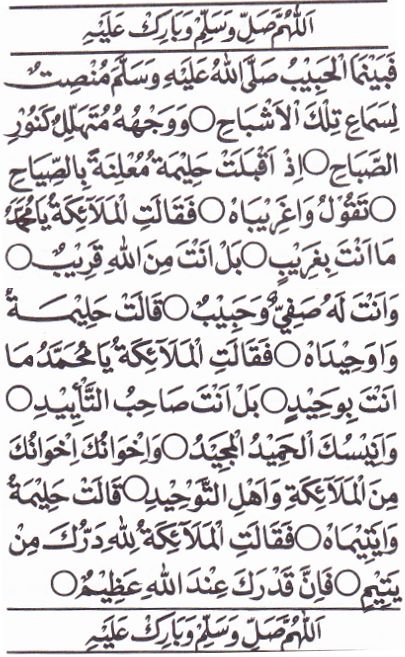 اَللّٰهُمَّ صَلِّ وَسَلِّمْ وَبَارِكْ عَلَيْهِ
فَبَيْنَمَا الْحَبِيْبُ صَلَّى اللهُ عَلَيْهِ وَسَلَّمَ مُنْصِتٌ
لِسَمَاعِ تِلْكَ الْاَشْبَاحِ ○ وَوَجْهُهُ مُتَهَلِّلٌ كَنُوْرِ
الصَّبَاحِ ○ اِذْ اَقْبَلَتْ حَلِيْمَةُ مُعْلِنَةً بِالصِّيَاحِ
○ تَقُوْلُ وَاغَرِيْبَاهْ ○ فَقَالَتِ الْمَلَآئِكَةُ يَا مُحَمَّدُ
مَا اَنْتَ بِغَرِيْبٍ ○ بَلْ اَنْتَ مِنَ اللهِ قَرِيْبٌ ○
وَاَنْتَ لَهُ صَفِيٌّ وَحَبِيْبٌ ○ قَالَتْ حَلِيْمَةُ
وَاوَحِيْدَاهْ ○ فَقَالَتِ الْمَلَآئِكَةُ يَا مُحَمَّدُ مَا
اَنْتَ بِوَحِيْدٍ ○ بَلْ اَنْتَ صَاحِبُ التَّأْيِيْدِ ○
وَاَنِيْسُكَ الْحَمِيْدُ الْمَجِيْدُ ○ وَاِخْوَانُكَ اِخْوَانُكَ
مِنَ الْمَلَآئِكَةِ وَاَهْلِ التَّوْحِيْدِ ○ قَالَتْ حَلِيْمَةُ
وَايَتِيْمَاهْ ○ فَقَالَتِ الْمَلَآئِكَةُ لِلّٰهِ دَرُّكَ مِنْ
يَتِيْمٍ ○ فَاِنَّ قَدْرَكَ عِنْدَ اللهِ عَظِيْمٌ ○
اَللّٰهُمَّ صَلِّ وَسَلِّمْ وَبَارِكْ عَلَيْهِ